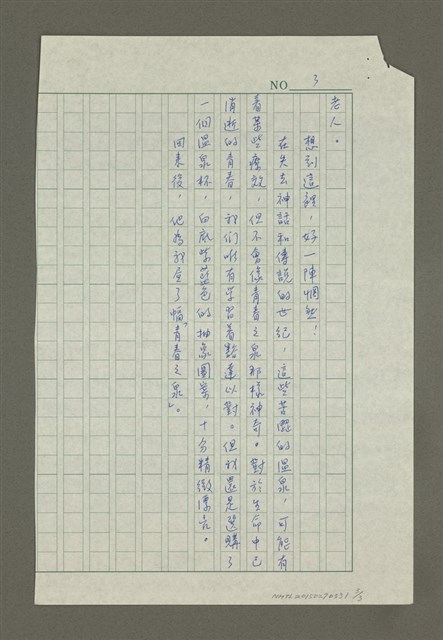 NO 3
老人。
想到這裡，好一陣惘然！
在失去神話和傳說的世紀，這些苦澀的溫泉，可能有
着某些療效，但不會像青春之泉那樣神奇。對於生命中已
消逝的青春，我們唯有學習着豁達以對。但我還是選購了
一個溫泉杯，白底紫藍色的抽象圖案，十分精緻漂亮。
回來後，他為我
畫了幅「青春之泉」。
3/3